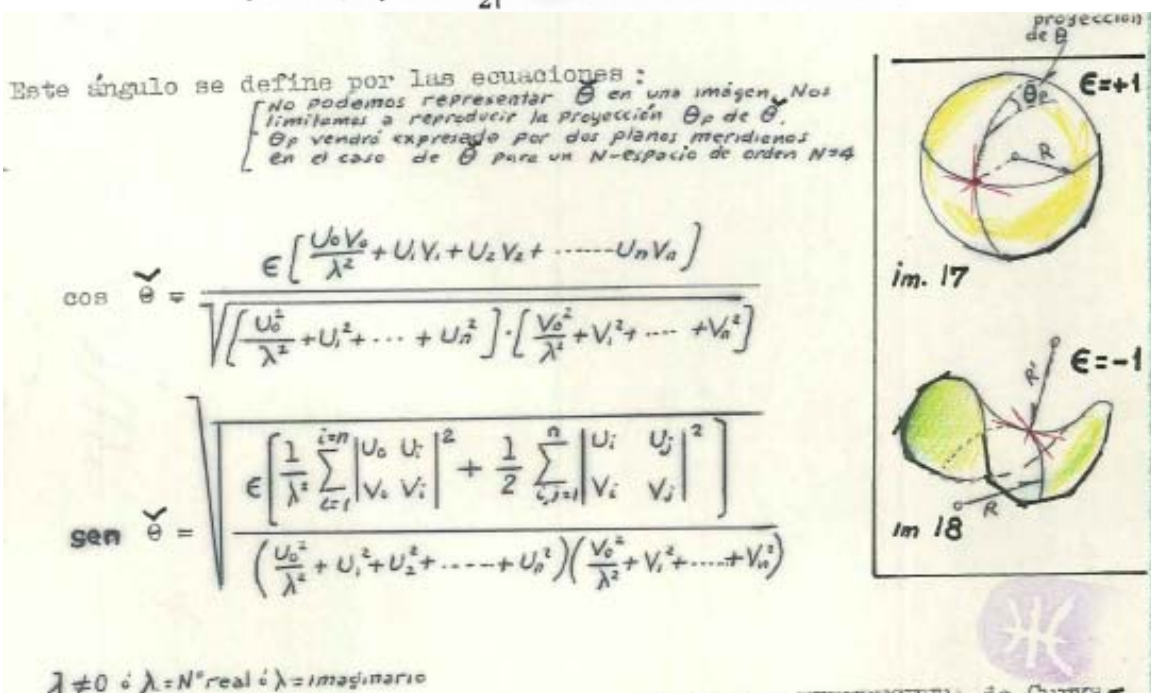 Este ángulo se define por las ecuaciones :
[No podemos representar θ̆ en una imágen. Nos
limitamos a reproducir la proyección θp de θ̆.
θp vendrá expresado por dos planos meridianos
en el caso de θ̆ para un N-espacio de orden N=4
proyección
de θ
ϵ=+1
θp
R
im. 17
cos θ̆ = ϵ[U₀V₀/λ² + U₁V₁ + U₂V₂ + ······UₙVₙ] / √([U₀²/λ² + U₁² + ··· + Uₙ²]·[V₀²/λ² + V₁² + ···· + Vₙ²])
ϵ=-1
R'
R
im 18
sen θ̆ = √(ϵ[1/λ² ∑ᵢ₌₁ⁱ⁼ⁿ |U₀ Uᵢ; V₀ Vᵢ|² + 1/2 ∑ᵢ,ⱼ₌₁ⁿ |Uᵢ Uⱼ; Vᵢ Vⱼ|²] / (U₀²/λ² + U₁² + U₂² + ····· + Uₙ²)(V₀²/λ² + V₁² + ····· + Vₙ²))
λ≠0 ó λ=Nº real ó λ=imaginario